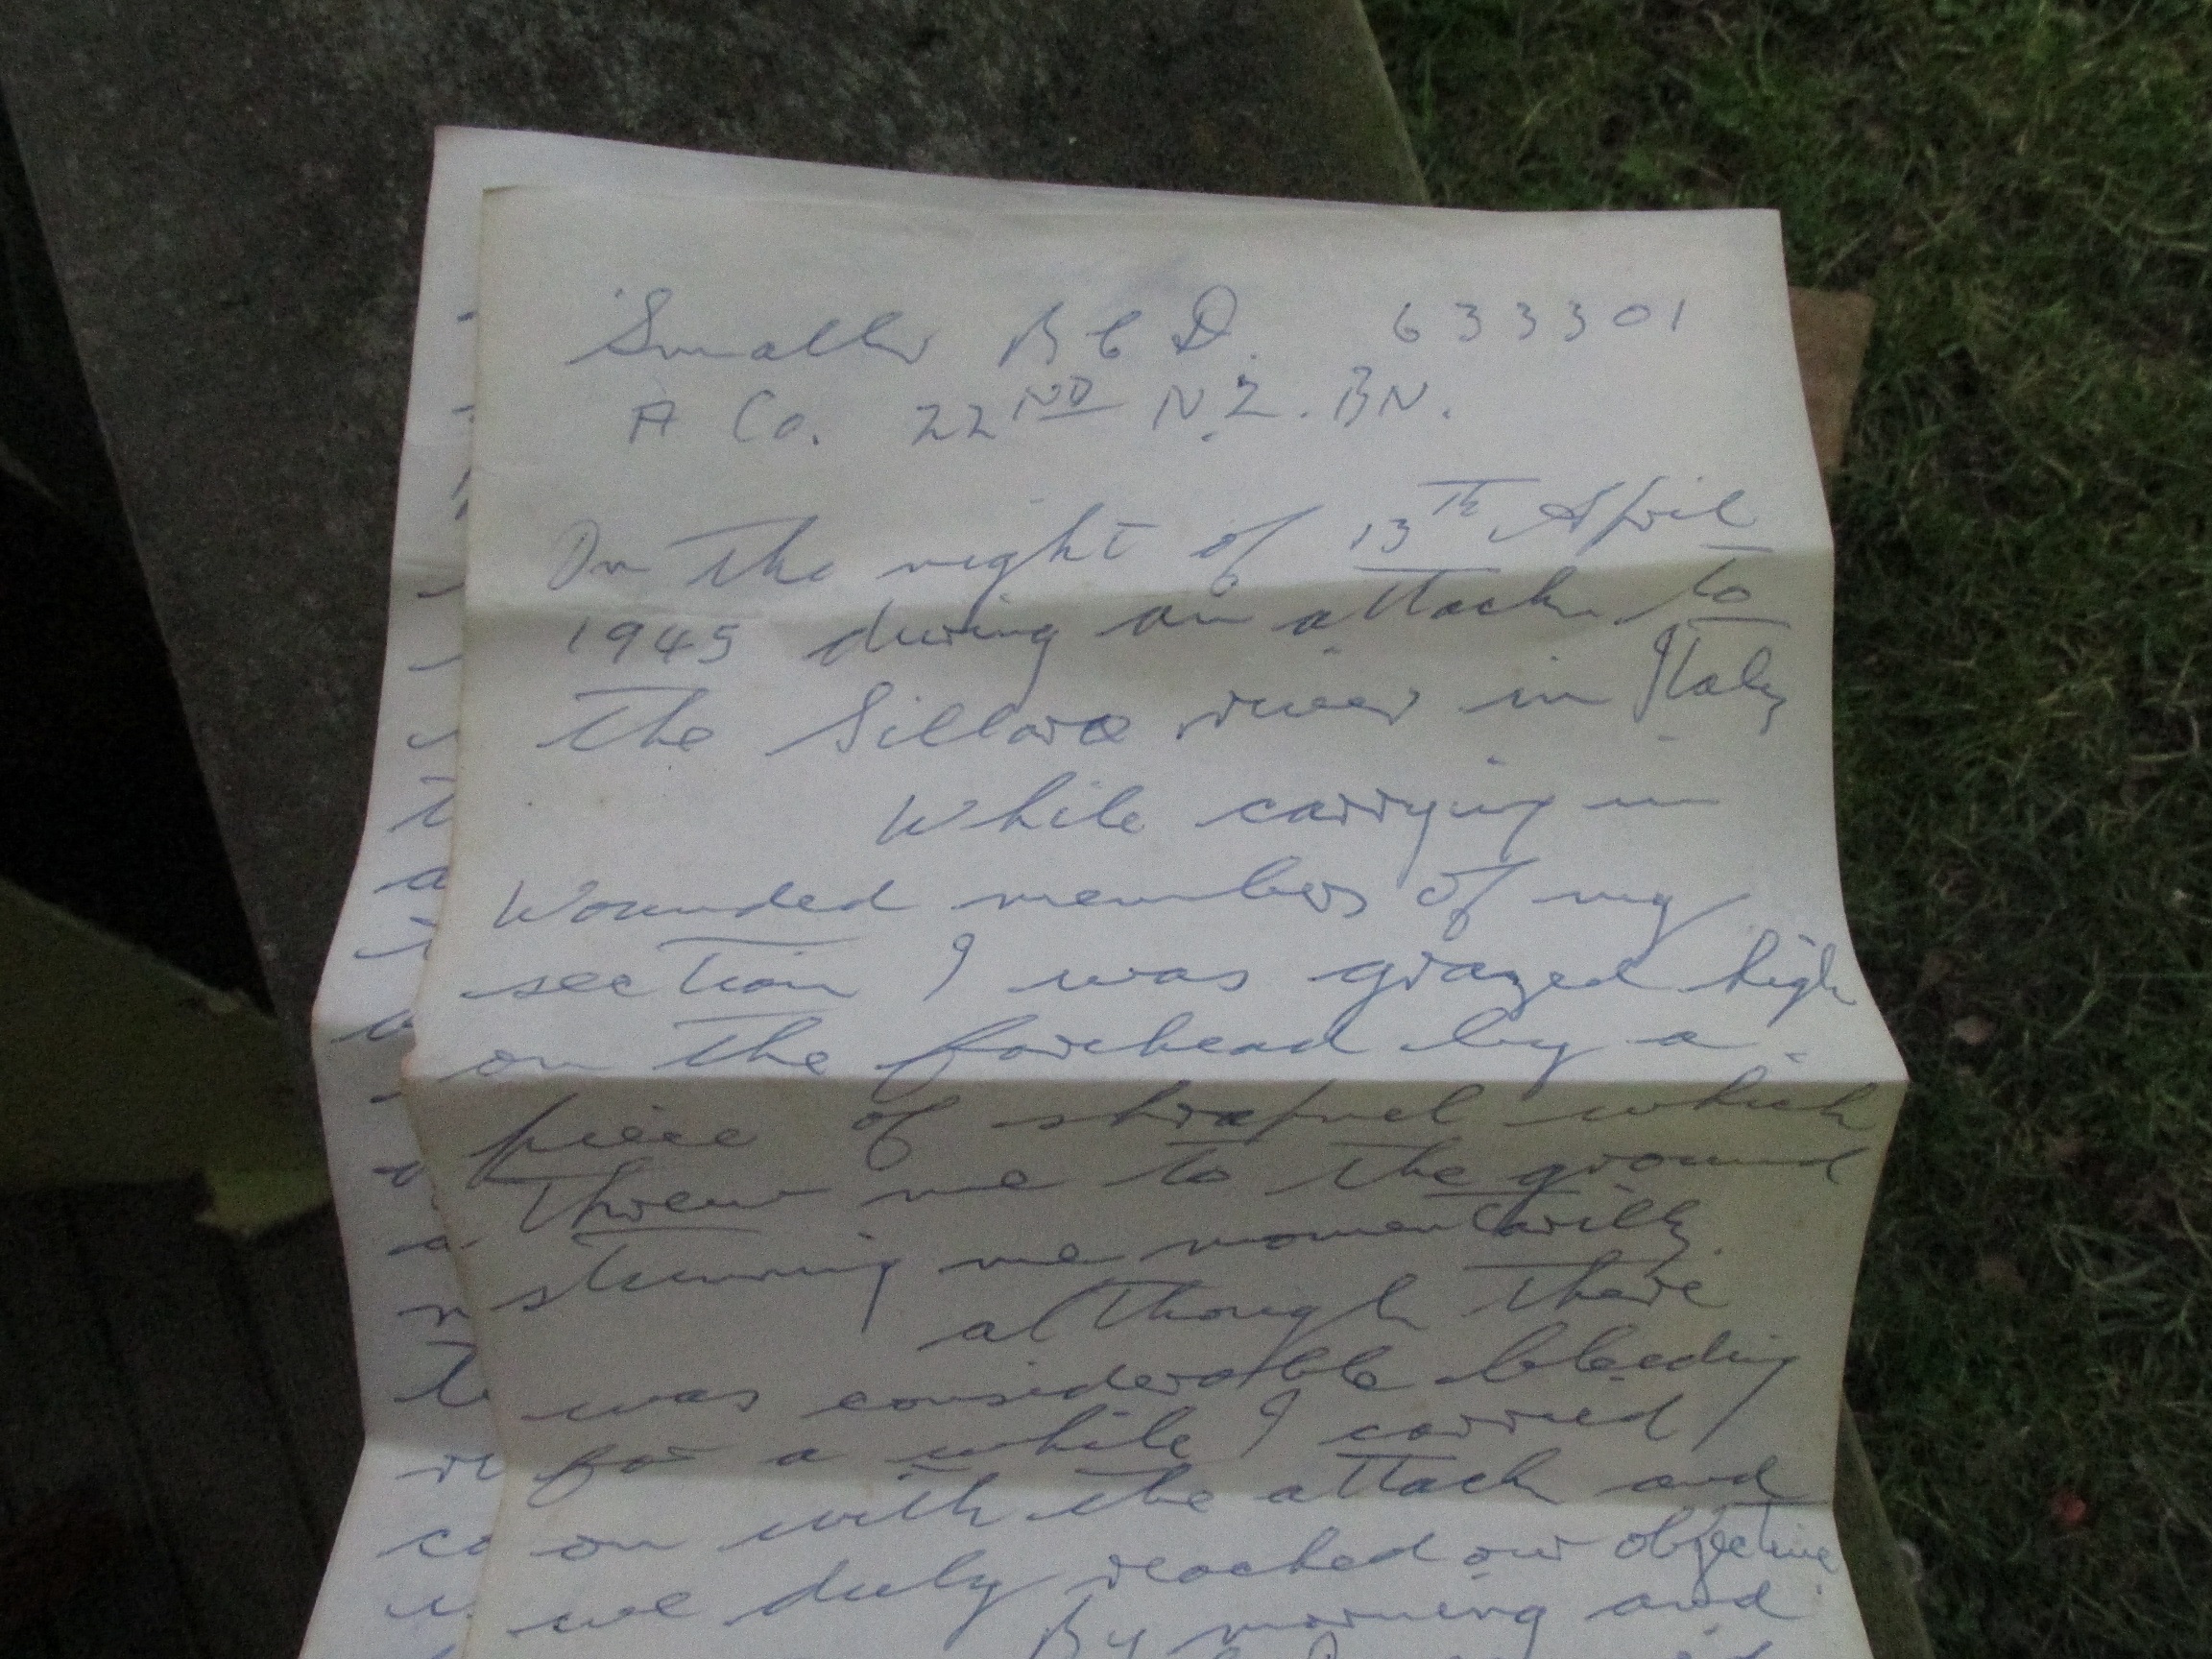 Smaller B C D. 633301
A Co. 22ND N.Z. BN.
On the night of 13Th April
1945 during an attack to
the Sillaro river in Italy
While carrying in
Wounded members of my
section I was grazed high
on the forehead by a
piece of shrapnel which
threw me to the ground
stunning me momentarilly.
although there
was considerable bleeding
for a while I carried
on with the attack and
we duly reached our objective
By morning and